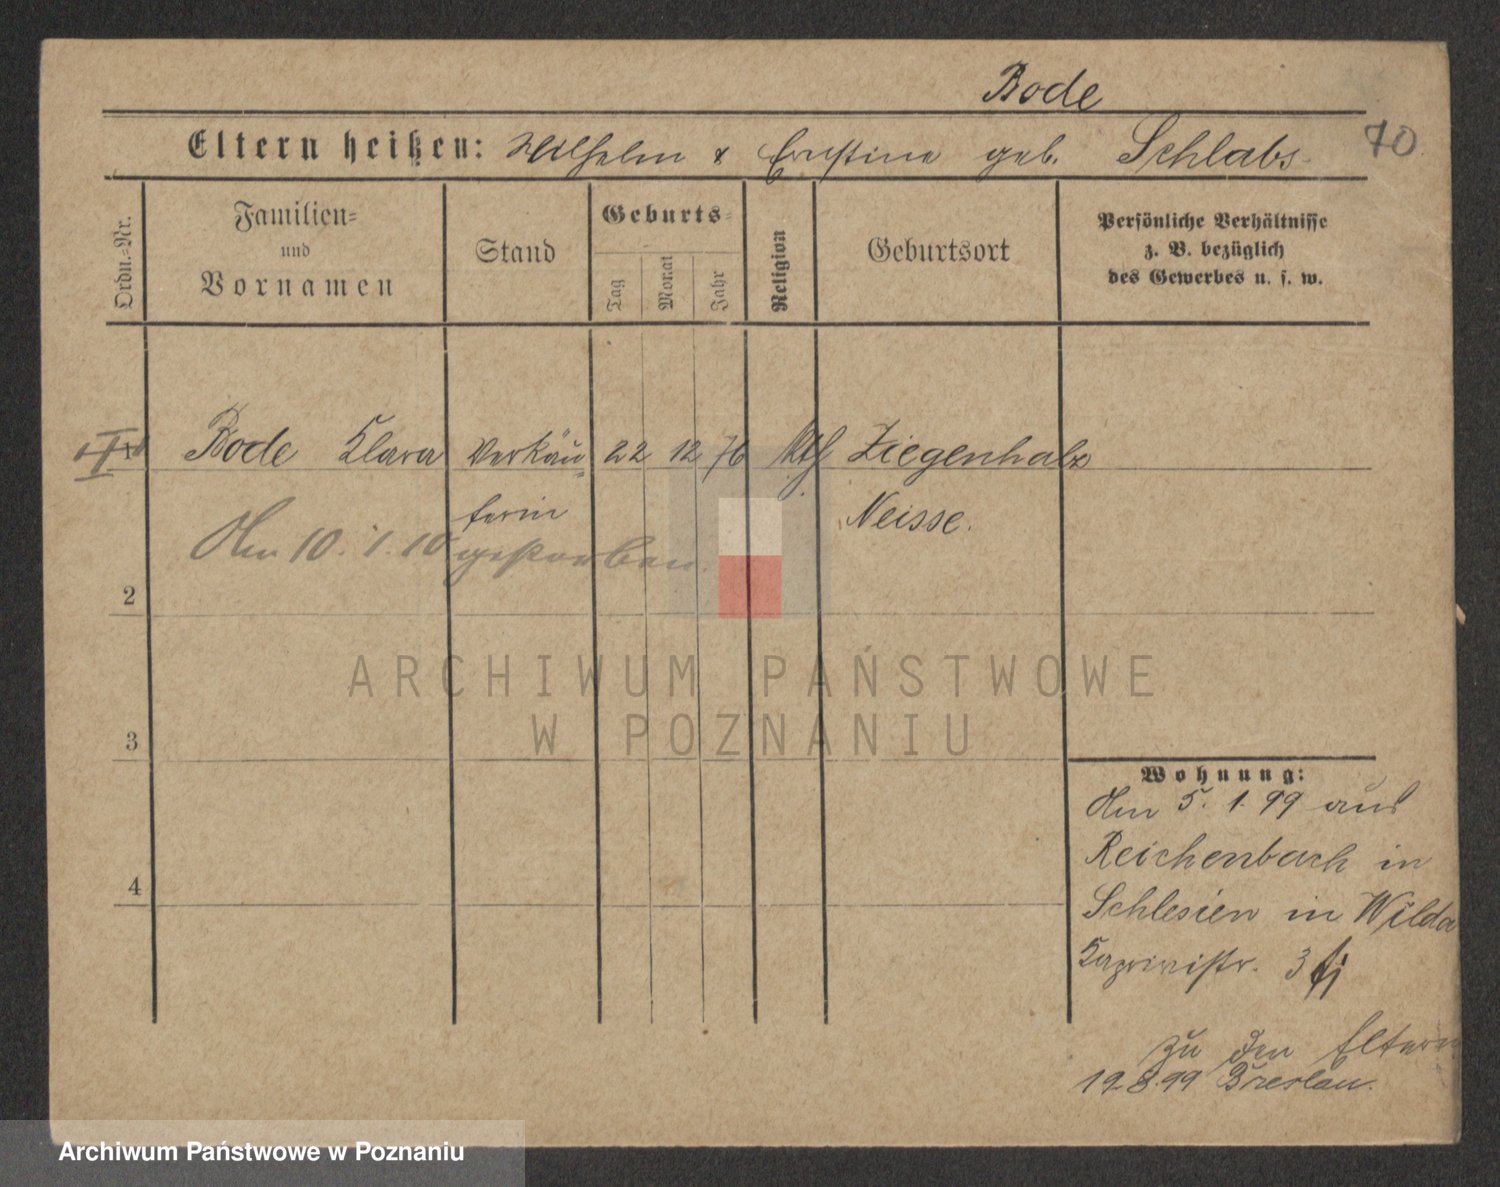 Bode
Eltern heißen: Wilhelm & Ernstine geb. Schlabs
70
Ordn.-Nr.
Familien-
und
Vornamen
Stand
Geburts-
Tag
Monat
Jahr
Religion
Geburtsort
Persönliche Verhältnisse
z. B. bezüglich
des Gewerbes u. s. w.
Bode Klara Verkäu- 22 12 76 kth Ziegenhals
ferin Neisse.
Am 10. 1. 10 gestorben.
2
3
4
ARCHIWUM PAŃSTWOWE
W POZNANIU
Wohnung:
Am 5. 1. 99 aus
Reichenbach in
Schlesien in Wilda
Kaprivistr. 3
zu den Eltern
19.8.99 Breslau.
Archiwum Państwowe w Poznaniu